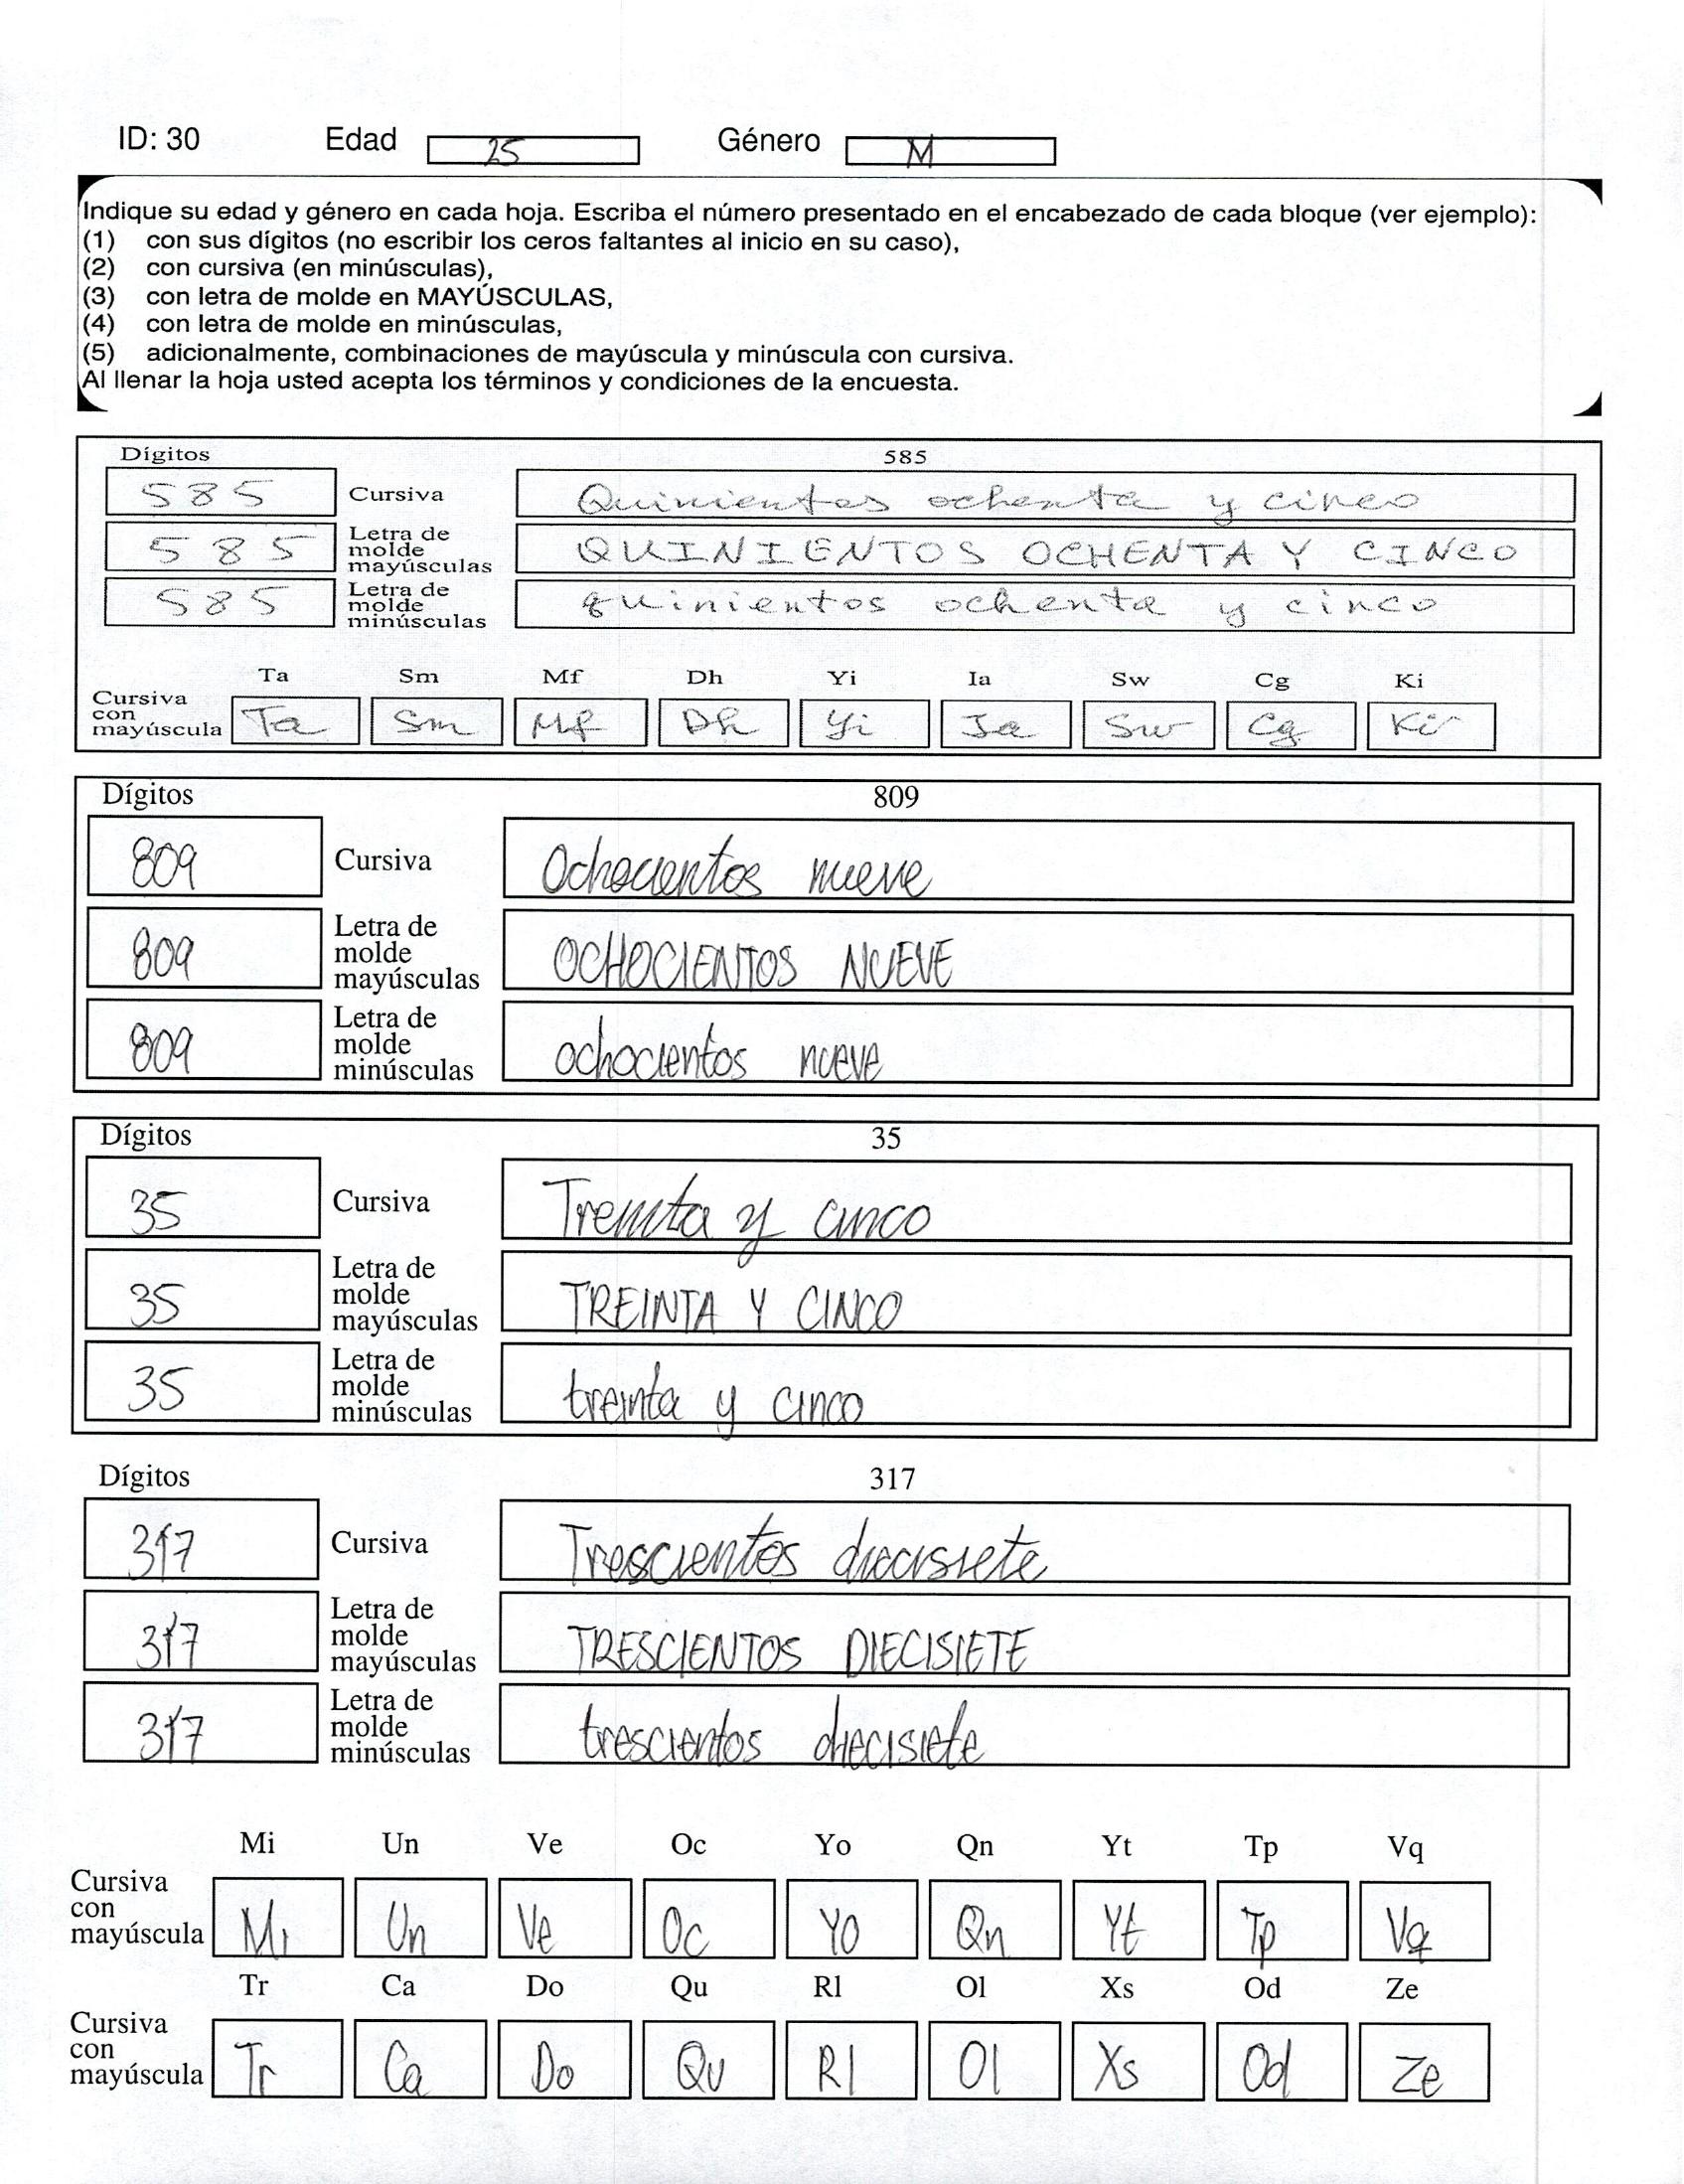 ID: 30 Edad 25 Género M
Indique su edad y género en cada hoja. Escriba el número presentado en el encabezado de cada bloque (ver ejemplo):
(1) con sus dígitos (no escribir los ceros faltantes al inicio en su caso),
(2) con cursiva (en minúsculas),
(3) con letra de molde en MAYÚSCULAS,
(4) con letra de molde en minúsculas,
(5) adicionalmente, combinaciones de mayúscula y minúscula con cursiva.
Al llenar la hoja usted acepta los términos y condiciones de la encuesta.
Dígitos 585
585 Cursiva Quinientos ochenta y cinco
585 Letra de molde mayúsculas QUINIENTOS OCHENTA Y CINCO
585 Letra de molde minúsculas quinientos ochenta y cinco
Ta Sm Mf Dh Yi Ia Sw Cg Ki
Cursiva con mayúscula Ta Sm Mf Dh Yi Ia Sw Cg Ki
Dígitos 809
809 Cursiva Ochocientos nueve
809 Letra de molde mayúsculas OCHOCIENTOS NUEVE
809 Letra de molde minúsculas ochocientos nueve
Dígitos 35
35 Cursiva Treinta y cinco
35 Letra de molde mayúsculas TREINTA Y CINCO
35 Letra de molde minúsculas treinta y cinco
Dígitos 317
317 Cursiva Trescientos diecisiete
317 Letra de molde mayúsculas TRESCIENTOS DIECISIETE
317 Letra de molde minúsculas trescientos diecisiete
Mi Un Ve Oc Yo Qn Yt Tp Vq
Cursiva con mayúscula Mi Un Ve Oc Yo Qn Yt Tp Vq
Tr Ca Do Qu Rl Ol Xs Od Ze
Cursiva con mayúscula Tr Ca Do Qu Rl Ol Xs Od Ze